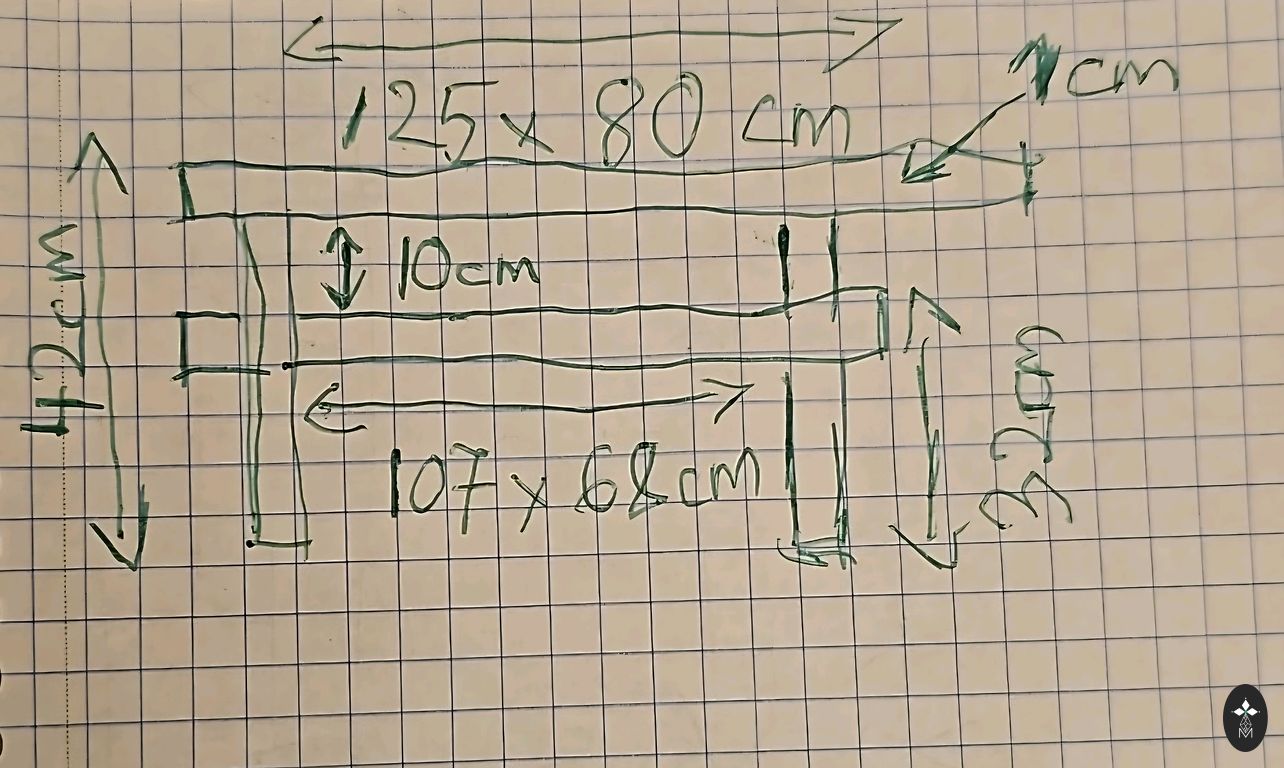 125 x 80 cm
1 cm
42cm
10cm
107 x 68cm
32cm